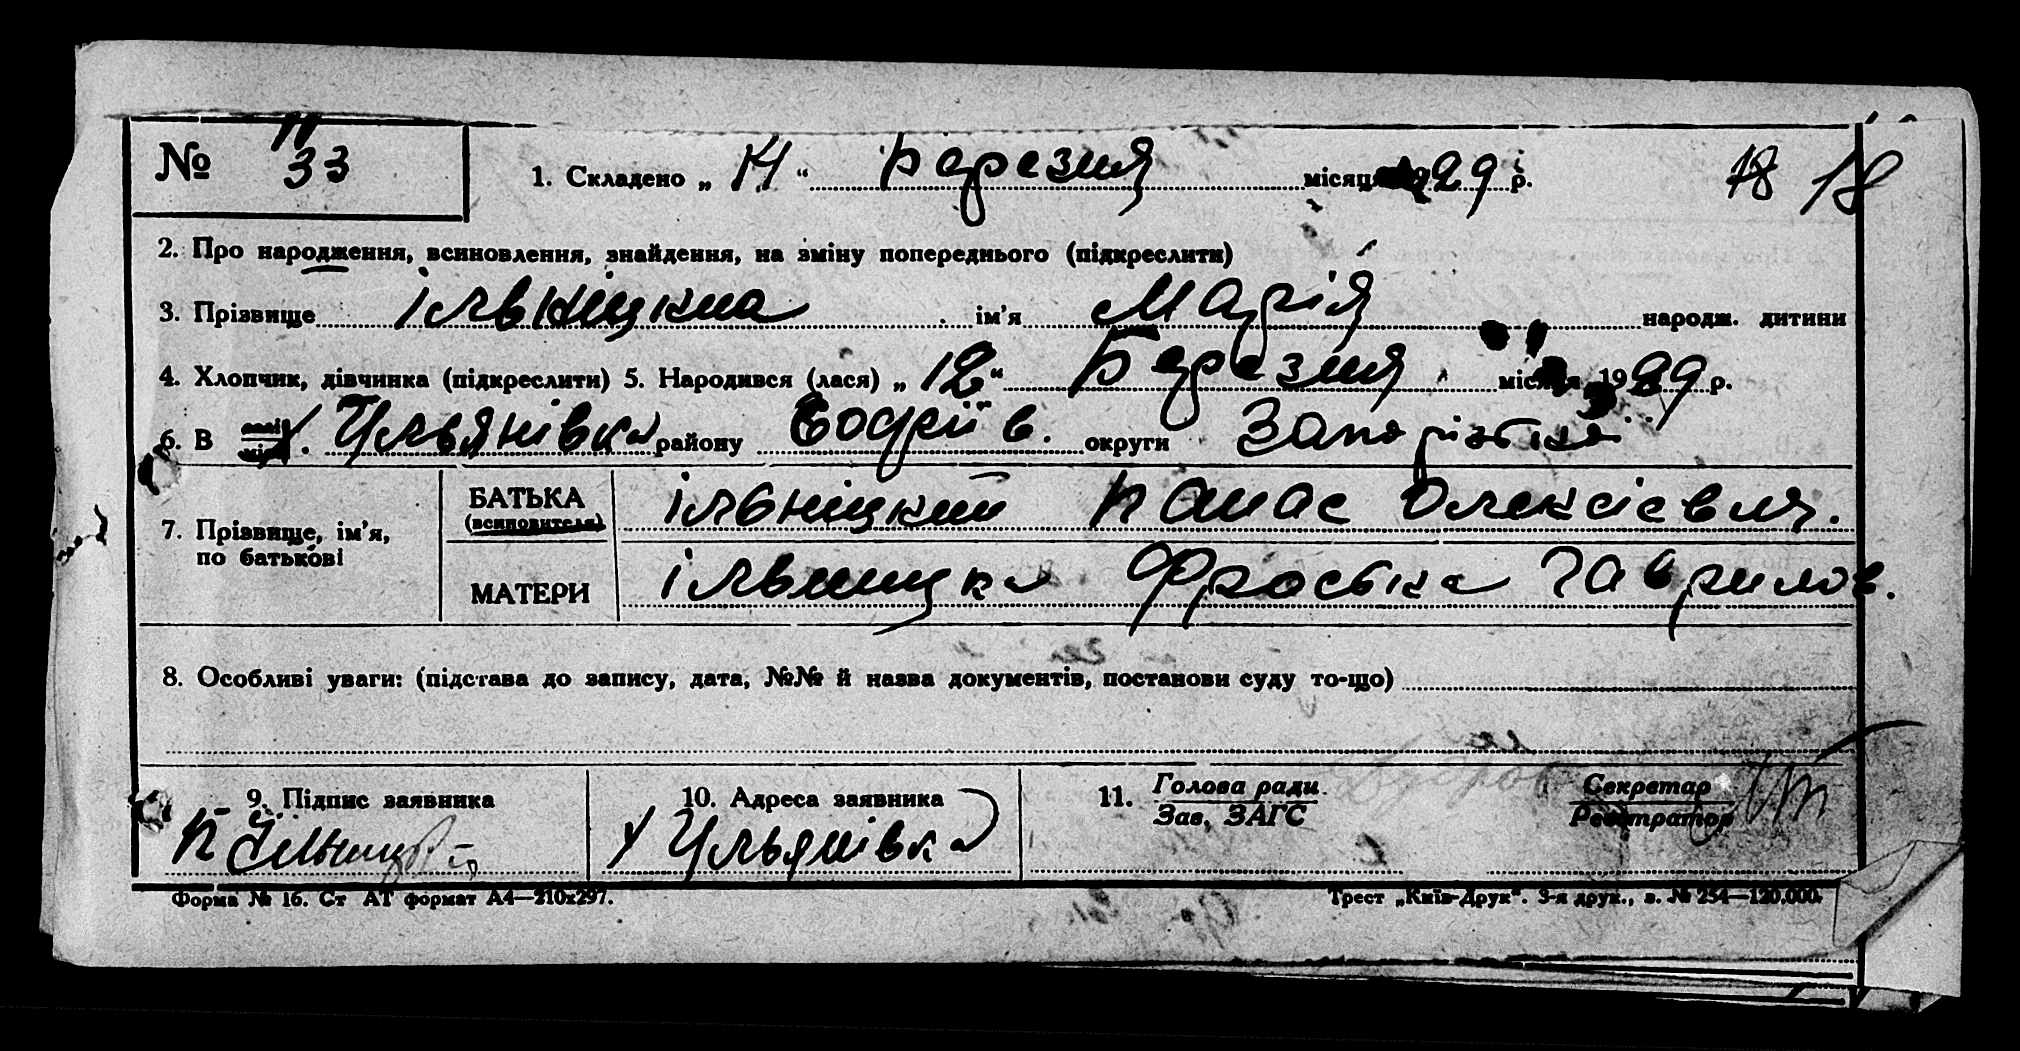 № 33
1. Складено „ 14 “ березня місяця 1929 р. 18 18
2. Про народження, всиновлення, знайдення, на зміну попереднього (підкреслити)
3. Прізвище Ільніцкиа ім'я Марія народж. дитини
4. Хлопчик, дівчинка (підкреслити) 5. Народився (лася) „ 12 “ Березня місяця 1929 р.
6. В селі Ульянівка району Софіїв. округи Запорізької
місті
7. Прізвище, ім'я, по батькові
БАТЬКА (всиновителя) Ільніцкий Панас Олексієвич.
МАТЕРИ Ільницка Фроська Гаврилов.
8. Особливі уваги: (підстава до запису, дата, №№ й назва документів, постанови суду то-що)
9. Підпис заявника 10. Адреса заявника 11. Голова ради Секретар
Зав. ЗАГС Реєстратор
П Ільницкі У Ульянівка
Форма № 16. Ст АТ формат А4—210х297. Трест „Київ-Друк“. 3-я друк., з. № 254—120.000.